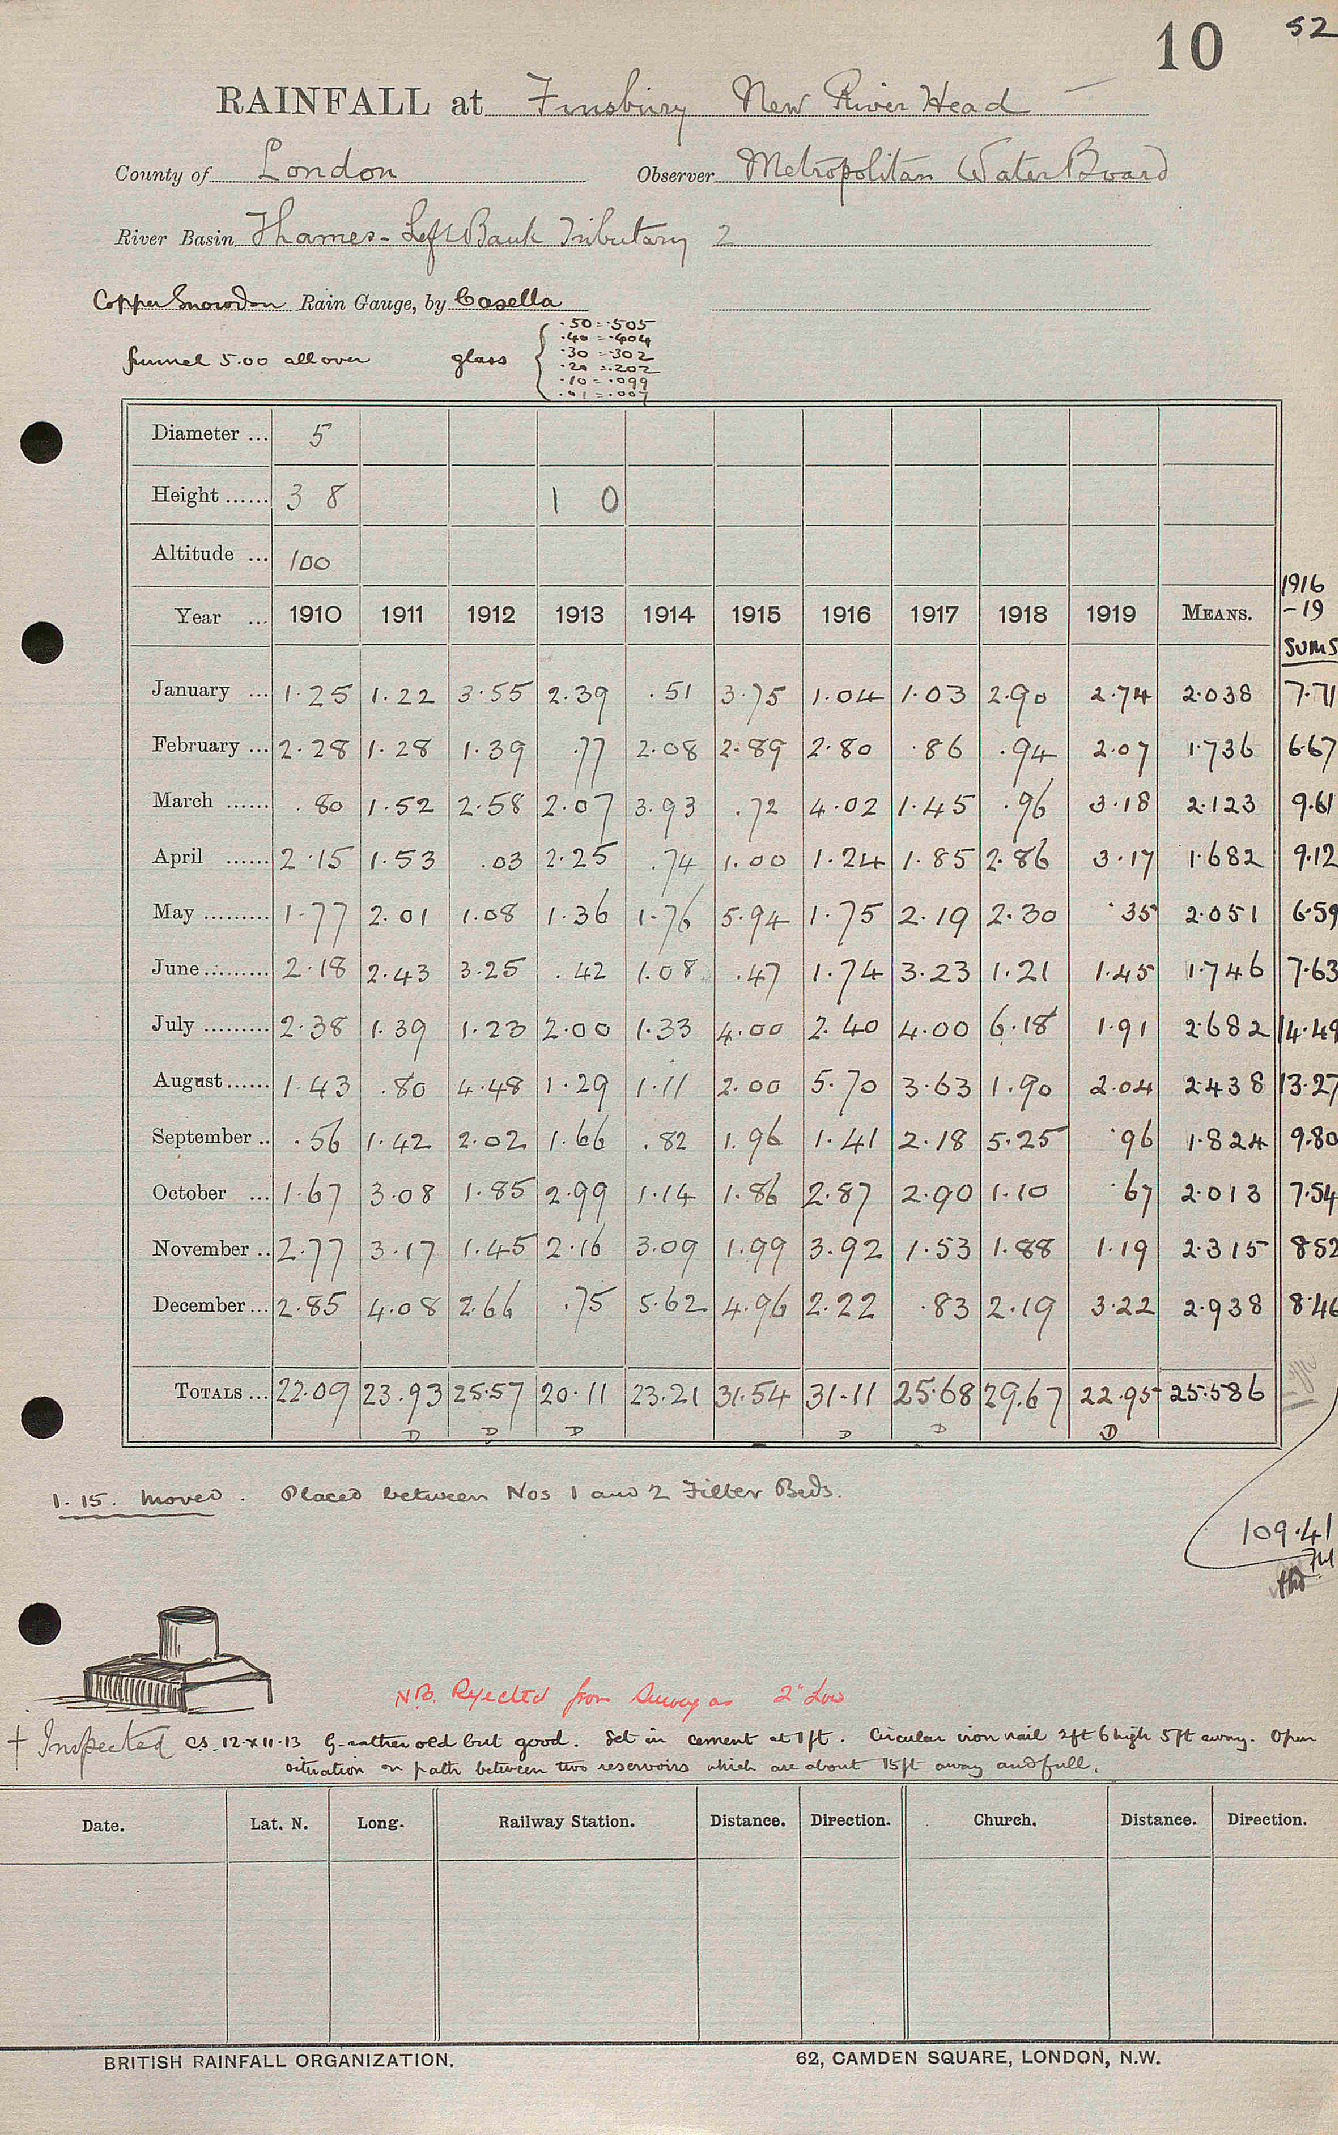 10 52
RAINFALL at Finsbury New River Head
County of London Observer Metropolitan Water Board
River Basin Thames - Left Bank Tributary 2
Copper Snowdon Rain Gauge, by Casella
funnel 5.00 all over glass
.50 = .505
.40 = .404
.30 = .302
.20 = .202
.10 = .099
.01 = .007
Diameter ... 5
Height ...... 3 8 1 0
Altitude ... 100
1916
Year ... 1910 1911 1912 1913 1914 1915 1916 1917 1918 1919 MEANS. -19
SUMS
January ... 1.25 1.22 3.55 2.39 .51 3.75 1.04 1.03 2.90 2.74 2.038 7.71
February ... 2.28 1.28 1.39 .77 2.08 2.89 2.80 .86 .94 2.07 1.736 6.67
March ...... .80 1.52 2.58 2.07 3.93 .72 4.02 1.45 .96 3.18 2.123 9.61
April ...... 2.15 1.53 .03 2.25 .74 1.00 1.24 1.85 2.86 3.17 1.682 9.12
May ......... 1.77 2.01 1.08 1.36 1.76 5.94 1.75 2.19 2.30 .35 2.051 6.59
June ......... 2.18 2.43 3.25 .42 1.08 .47 1.74 3.23 1.21 1.45 1.746 7.63
July ......... 2.38 1.39 1.23 2.00 1.33 4.00 2.40 4.00 6.18 1.91 2.682 14.49
August ...... 1.43 .80 4.48 1.29 1.11 2.00 5.70 3.63 1.90 2.04 2.438 13.27
September .. .56 1.42 2.02 1.66 .82 1.96 1.41 2.18 5.25 .96 1.824 9.80
October ... 1.67 3.08 1.85 2.99 1.14 1.86 2.87 2.90 1.10 .67 2.013 7.54
November .. 2.77 3.17 1.45 2.16 3.09 1.99 3.92 1.53 1.88 1.19 2.315 8.52
December ... 2.85 4.08 2.66 .75 5.62 4.96 2.22 .83 2.19 3.22 2.938 8.46
TOTALS ... 22.09 23.93 25.57 20.11 23.21 31.54 31.11 25.68 29.67 22.95 25.586
D D D D D D
1.15. Moved. Placed between Nos 1 and 2 Filter Beds.
109.41
NB. Rejected from Survey as 2" Low
† Inspected CS 12 x 11.13 G - rather old but good. Set in cement at 1ft. Circular iron rail 2ft 6 high 5ft away. Open
situation on path between two reservoirs which are about 15ft away and full.
Date. Lat. N. Long. Railway Station. Distance. Direction. Church. Distance. Direction.
BRITISH RAINFALL ORGANIZATION. 62, CAMDEN SQUARE, LONDON, N.W.